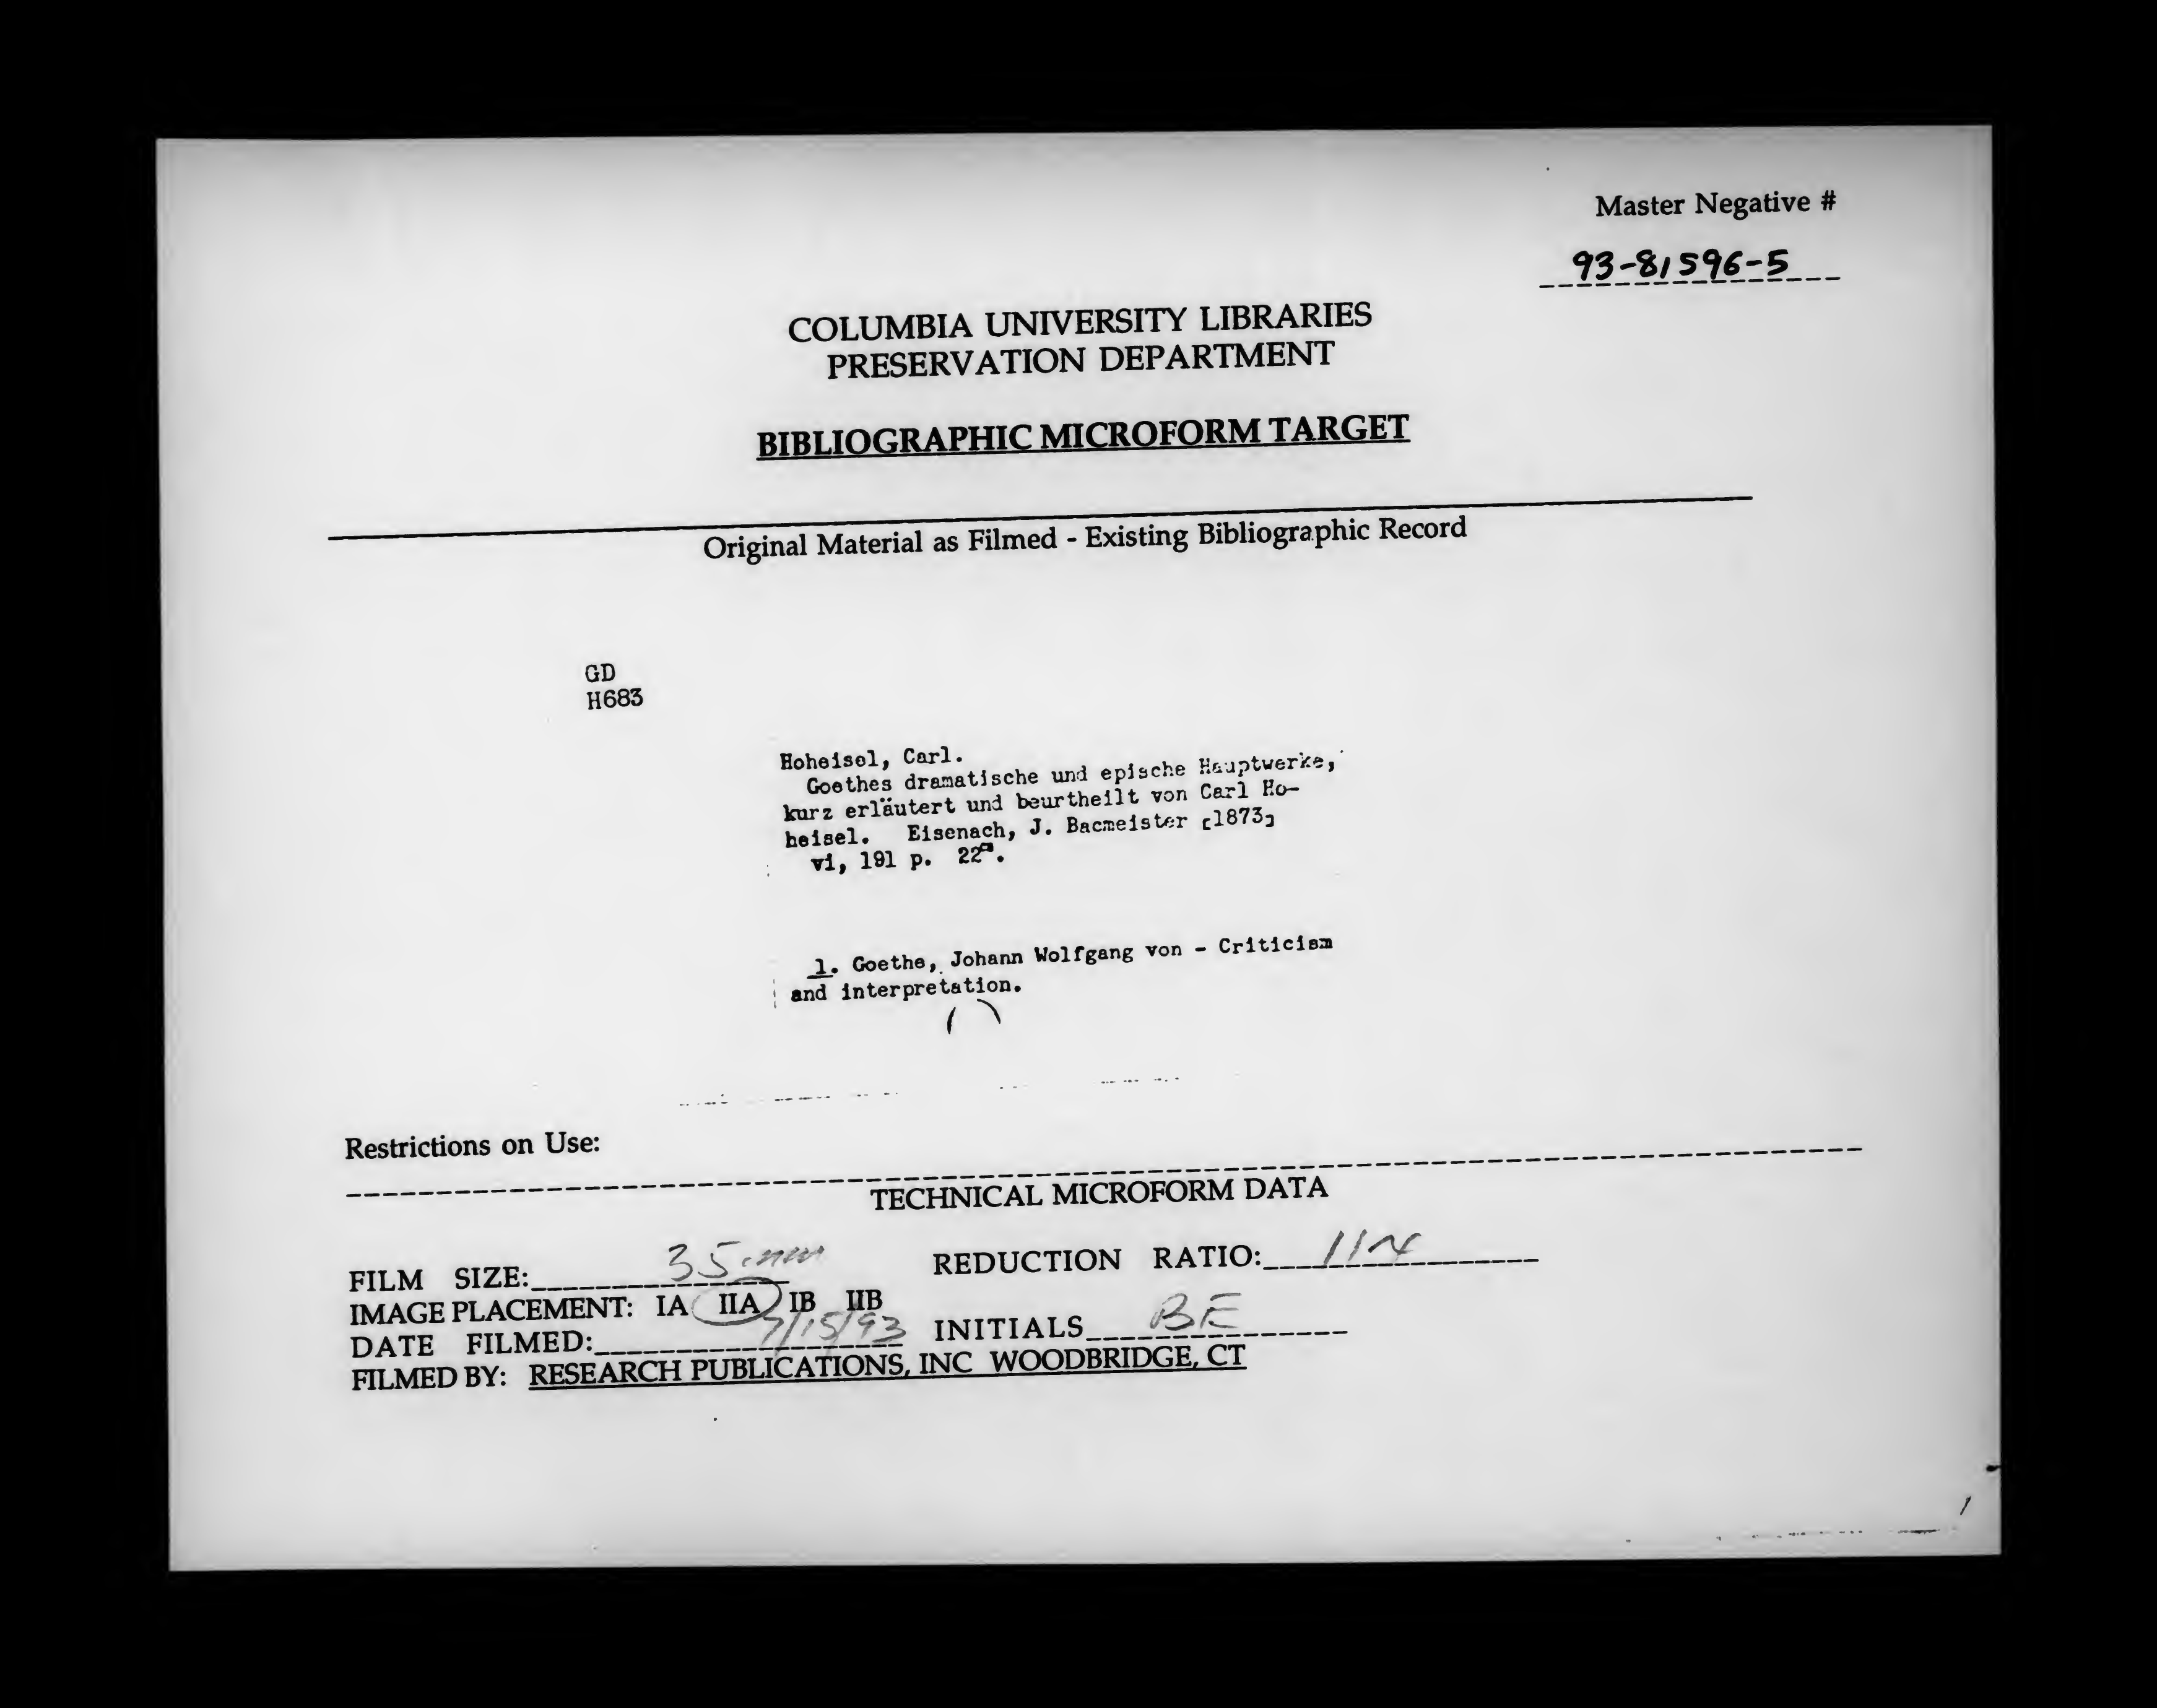 Master Negative #
93-81596-5
COLUMBIA UNIVERSITY LIBRARIES
PRESERVATION DEPARTMENT
BIBLIOGRAPHIC MICROFORM TARGET
Original Material as Filmed - Existing Bibliographic Record
GD
H683
Hoheisel, Carl.
Goethes dramatische und epische Hauptwerke,
kurz erläutert und beurtheilt von Carl Ho-
heisel. Eisenach, J. Bacmeister [1873]
vi, 191 p. 22cm.
1. Goethe, Johann Wolfgang von - Criticism
and interpretation.
Restrictions on Use:
TECHNICAL MICROFORM DATA
FILM SIZE: 35mm REDUCTION RATIO: 11x
IMAGE PLACEMENT: IA IIA IB IIB
DATE FILMED: 7/15/93 INITIALS BE
FILMED BY: RESEARCH PUBLICATIONS, INC WOODBRIDGE, CT